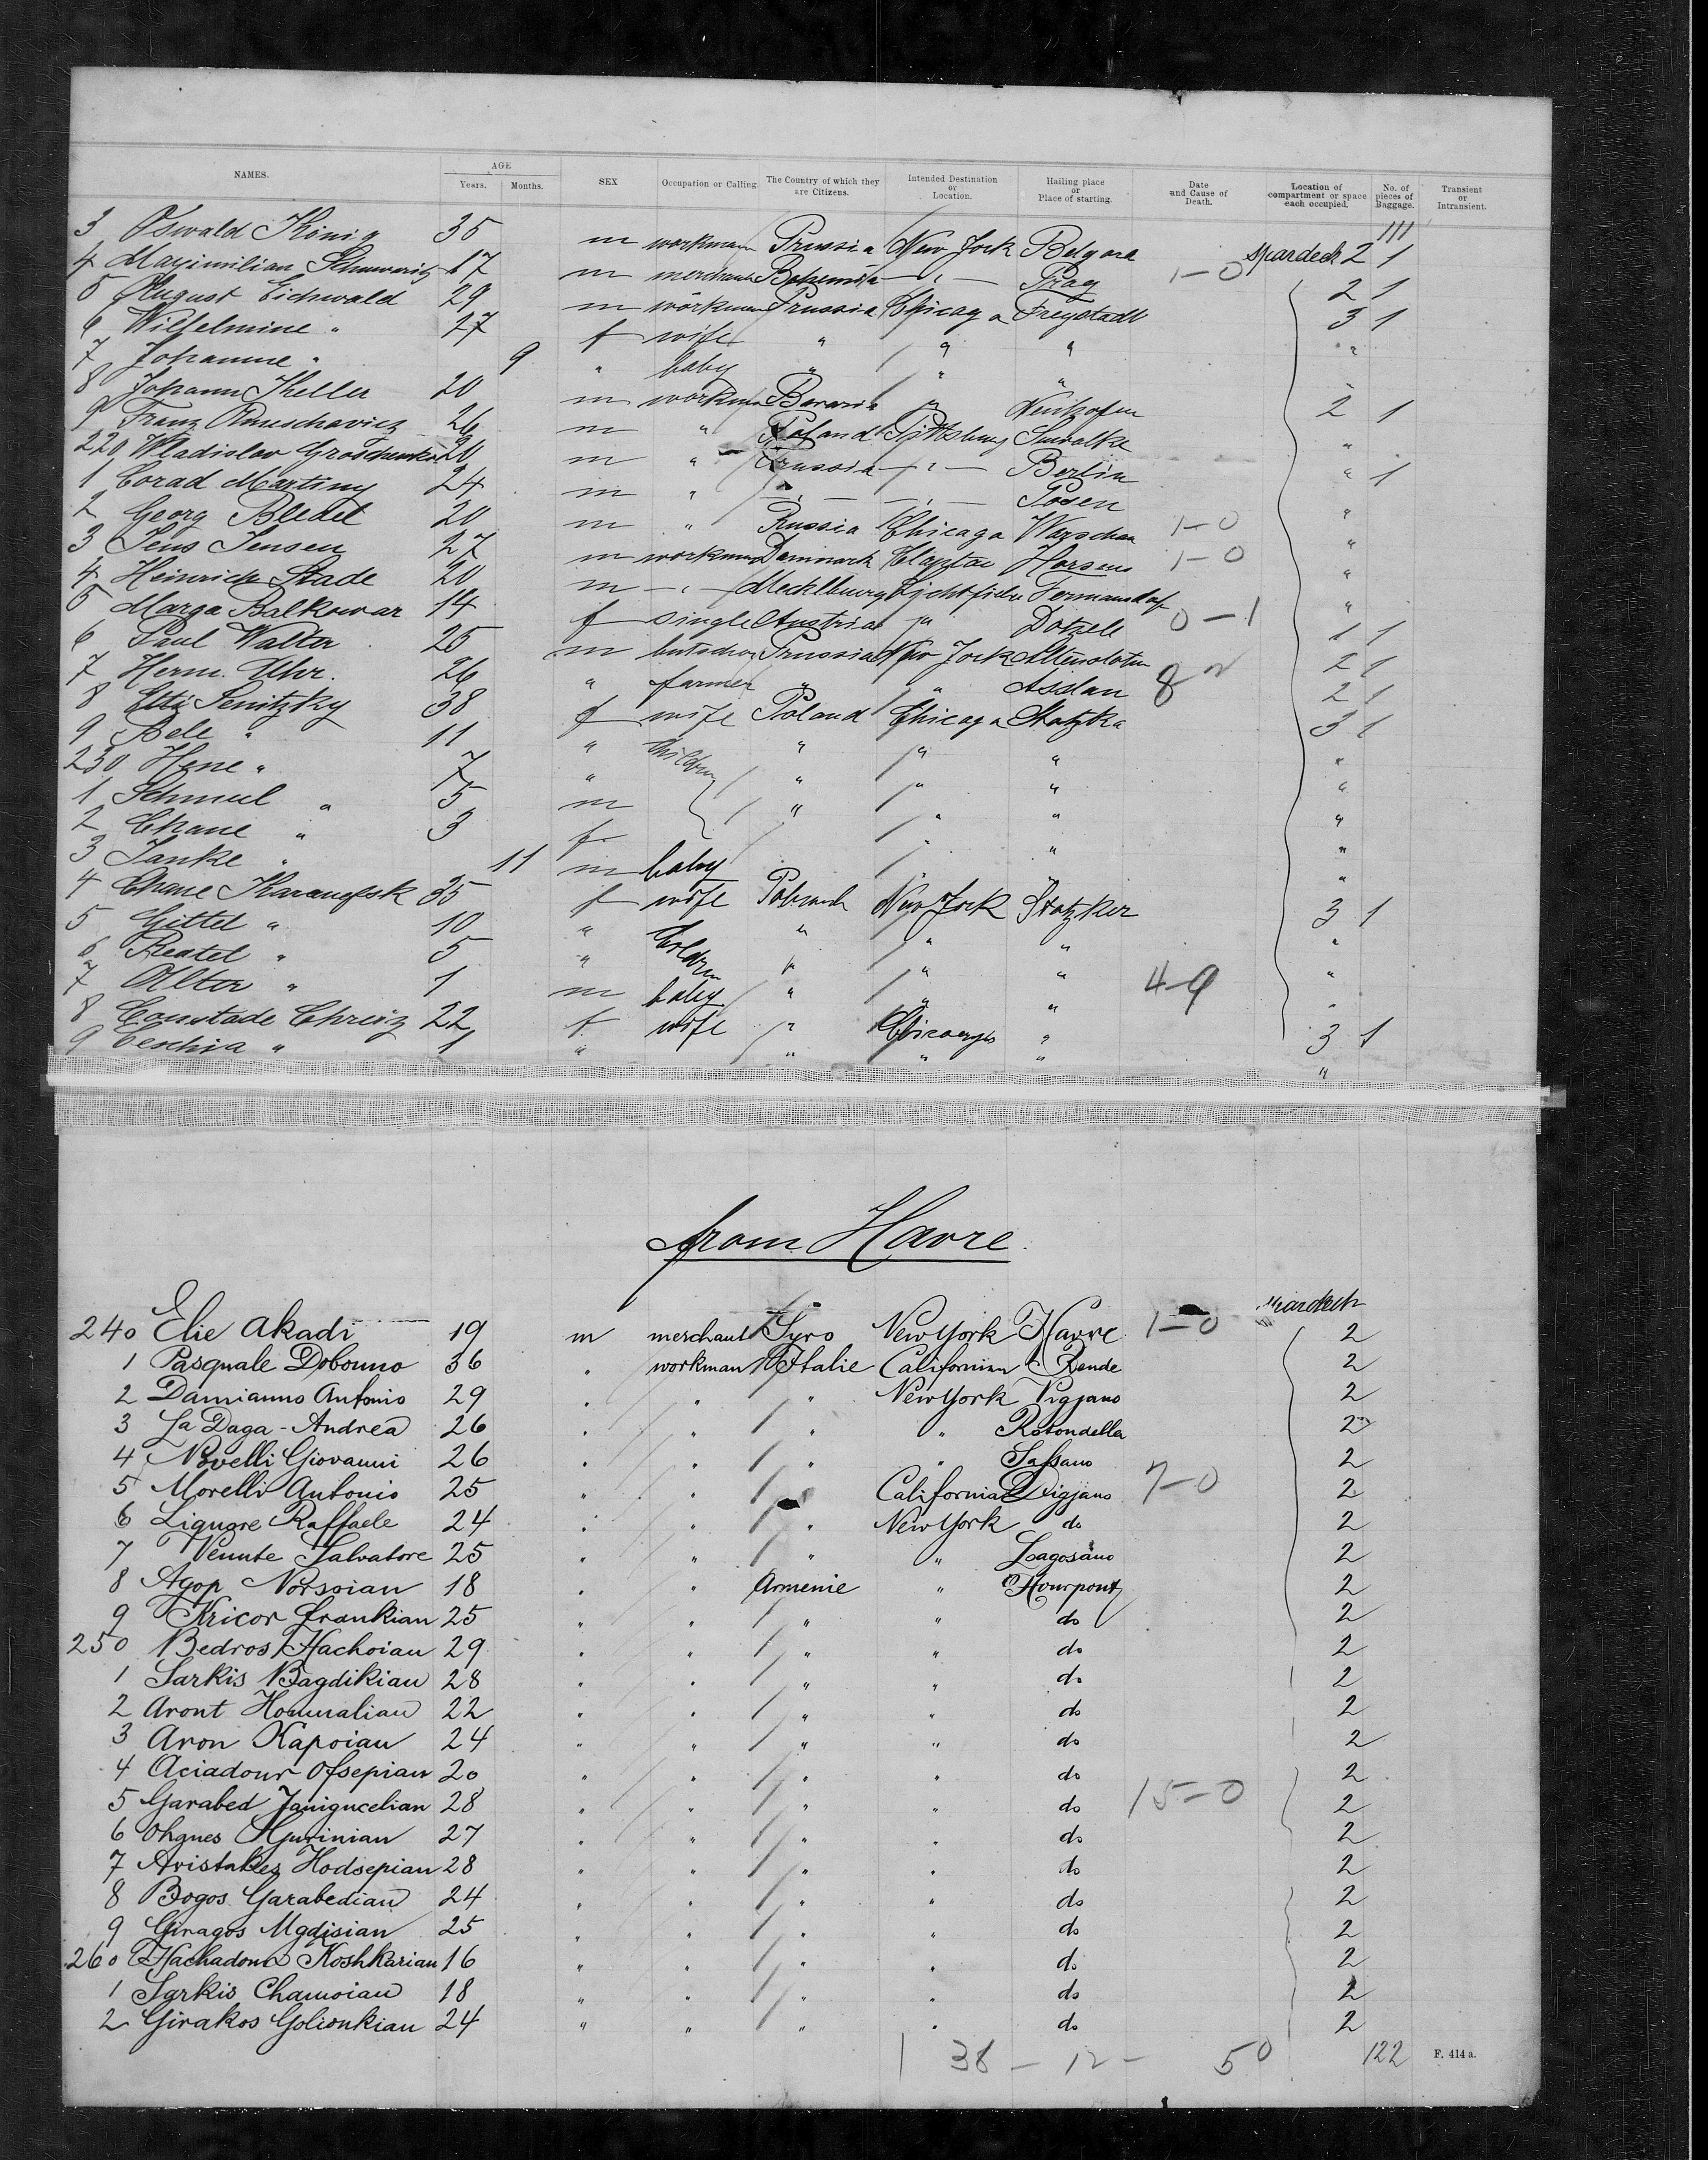 NAMES. AGE Years. Months. SEX Occupation or Calling. The Country of which they are Citizens. Intended Destination or Location. Hailing place or Place of starting. Date and Cause of Death. Location of compartment or space each occupied. No. of pieces of Baggage. Transient or Intransient.
111
3 Oswald König 35 m workman Prussia New York Belgora 2 1
4 Maximilian 17 m merchant Bohemia " Prag 1-0 2 1
5 August Eichwald 29 m workman Prussia Chicago Freystadt 3 1
6 Wilhelmine " 27 f wife " " " "
7 Johanne " 9 " baby " " "
8 Johann Keller 20 m workman Bavaria " Neuhofen 2 1
9 Franz 26 m " Poland Pittsburg Suwalke "
220 Wladislav 20 m " Prussia " Berlin " 1
1 Corad Martiny 24 m " " " Posen "
2 Georg Bledel 20 m " Russia Chicago Warschau 1-0 "
3 Jens Jensen 27 m workman Danmark Horsens 1-0 "
4 Heinrich Stade 20 m " Mecklburg "
5 Marga Balkowar 14 f single Austria " Dotzele 0-1 1 1
6 Paul Walter 25 m Prussia New York 2 1
7 Herm. Uhr. 26 " farmer " " Asslau 8 2 1
8 Etti Senitzky 38 f wife Poland Chicago Statzka 3 1
9 Bele " 11 " Children " " " "
230 Hene " 7 " " " " "
1 Schmul " 5 m " " " "
2 Chane " 3 f " " "
3 Janke " 11 m baby " " "
4 Chane 35 f wife Poland New York Statzker 3 1
5 Gittel " 10 " Children " " " "
6 Reatel " 5 " " " " "
7 Alter " 1 m baby " " " 4-9 "
8 22 f wife " Chicago " 3 1
9 " 1 " " " " "
from Havre.
240 Elie Akadi 19 m merchant Syro New York Havre 1-0 2
1 Pasquale Dobouno 36 " workman Italie Californien Rende 2
2 Damianno Antonio 29 " " " New York Vigjano 2
3 La Daga-Andrea 26 " " " " Rotondella 2
4 Novelli Giovanni 26 " " " " Sassano 2
5 Morelli Antonio 25 " " California Vigjano 7-0 2
6 Liguore Raffaele 24 " " " New York do 2
7 Venute Salvatore 25 " " " " Lagosano 2
8 Agop Norsoian 18 " " Armenie " Hourpout 2
9 Kricor frankian 25 " " " " do 2
250 Bedros Hachoian 29 " " " " do 2
1 Sarkis Bagdikian 28 " " " " do 2
2 Aront Hommalian 22 " " " " do 2
3 Aron Kapoian 24 " " " " do 2
4 Aciadour Ofsepian 20 " " " " do 2
5 Garabed Janigucelian 28 " " " " do 15-0 2
6 Ohgnes 27 " " " " do 2
7 Aristakes Hodsepian 28 " " " " do 2
8 Bogos Garabedian 24 " " " " do 2
9 Giragos Mgdisian 25 " " " " do 2
260 Hachadour Koshkarian 16 " " " " do 2
1 Sarkis Chamoian 18 " " " " do 2
2 Girakos Golionkian 24 " " " " do 2
38 - 12 - 50 122 F. 414 a.